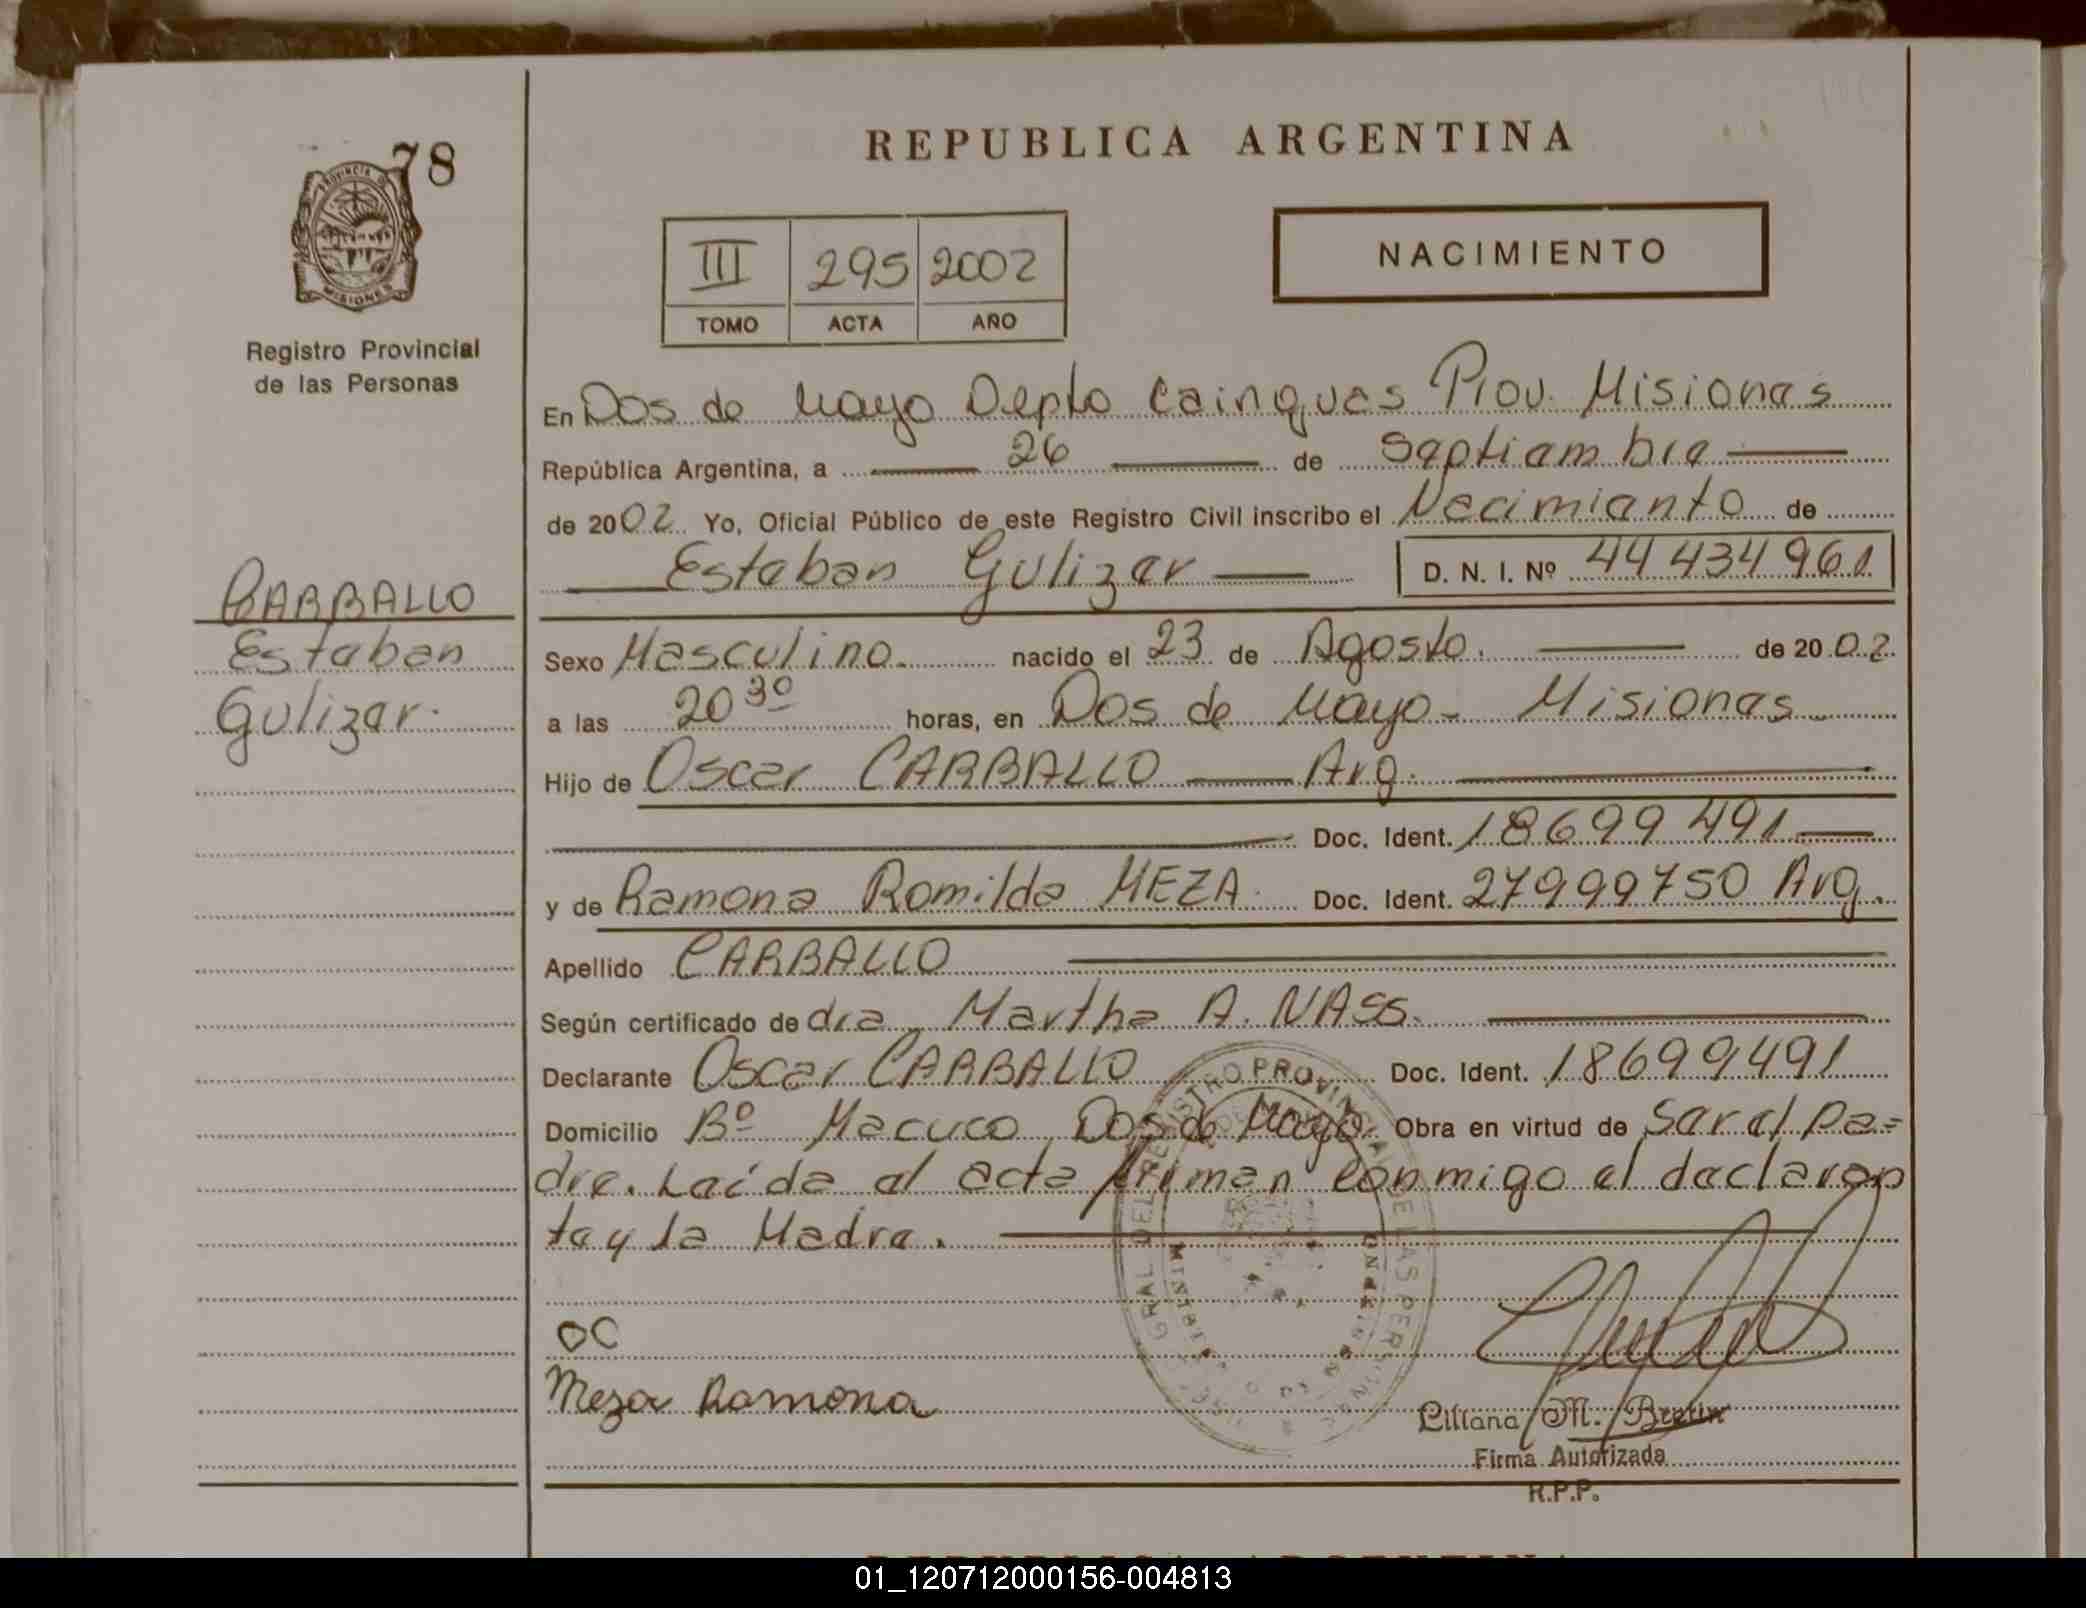 REPUBLICA ARGENTINA
78
PROVINCIA DE
MISIONES
Registro Provincial
de las Personas
III 295 2002
TOMO ACTA AÑO
NACIMIENTO
En Dos de Mayo Depto Cainguas Prov. Misiones
República Argentina, a 26 de Septiembre
de 2002 Yo, Oficial Público de este Registro Civil inscribo el Nacimiento de
Esteban Gulizar D. N. I. Nº 44 434 961
CARBALLO
Esteban
Gulizar.
Sexo Masculino. nacido el 23 de Agosto. de 2002.
a las 20 30 horas, en Dos de Mayo - Misiones
Hijo de Oscar CARBALLO Arg.
Doc. Ident. 18699 491
y de Ramona Romilda MEZA. Doc. Ident. 27999750 Arg.
Apellido CARBALLO
Según certificado de dra Martha A. NASS.
Declarante Oscar CARBALLO Doc. Ident. 18699491
Domicilio Bº Macuco Dos de Mayo. Obra en virtud de Ser el pa=
dre. Leída el acta firman conmigo el declaran
te y la Madre.
OC
Meza Ramona
Liliana M. Bretin
Firma Autorizada
R.P.P.
01_120712000156-004813